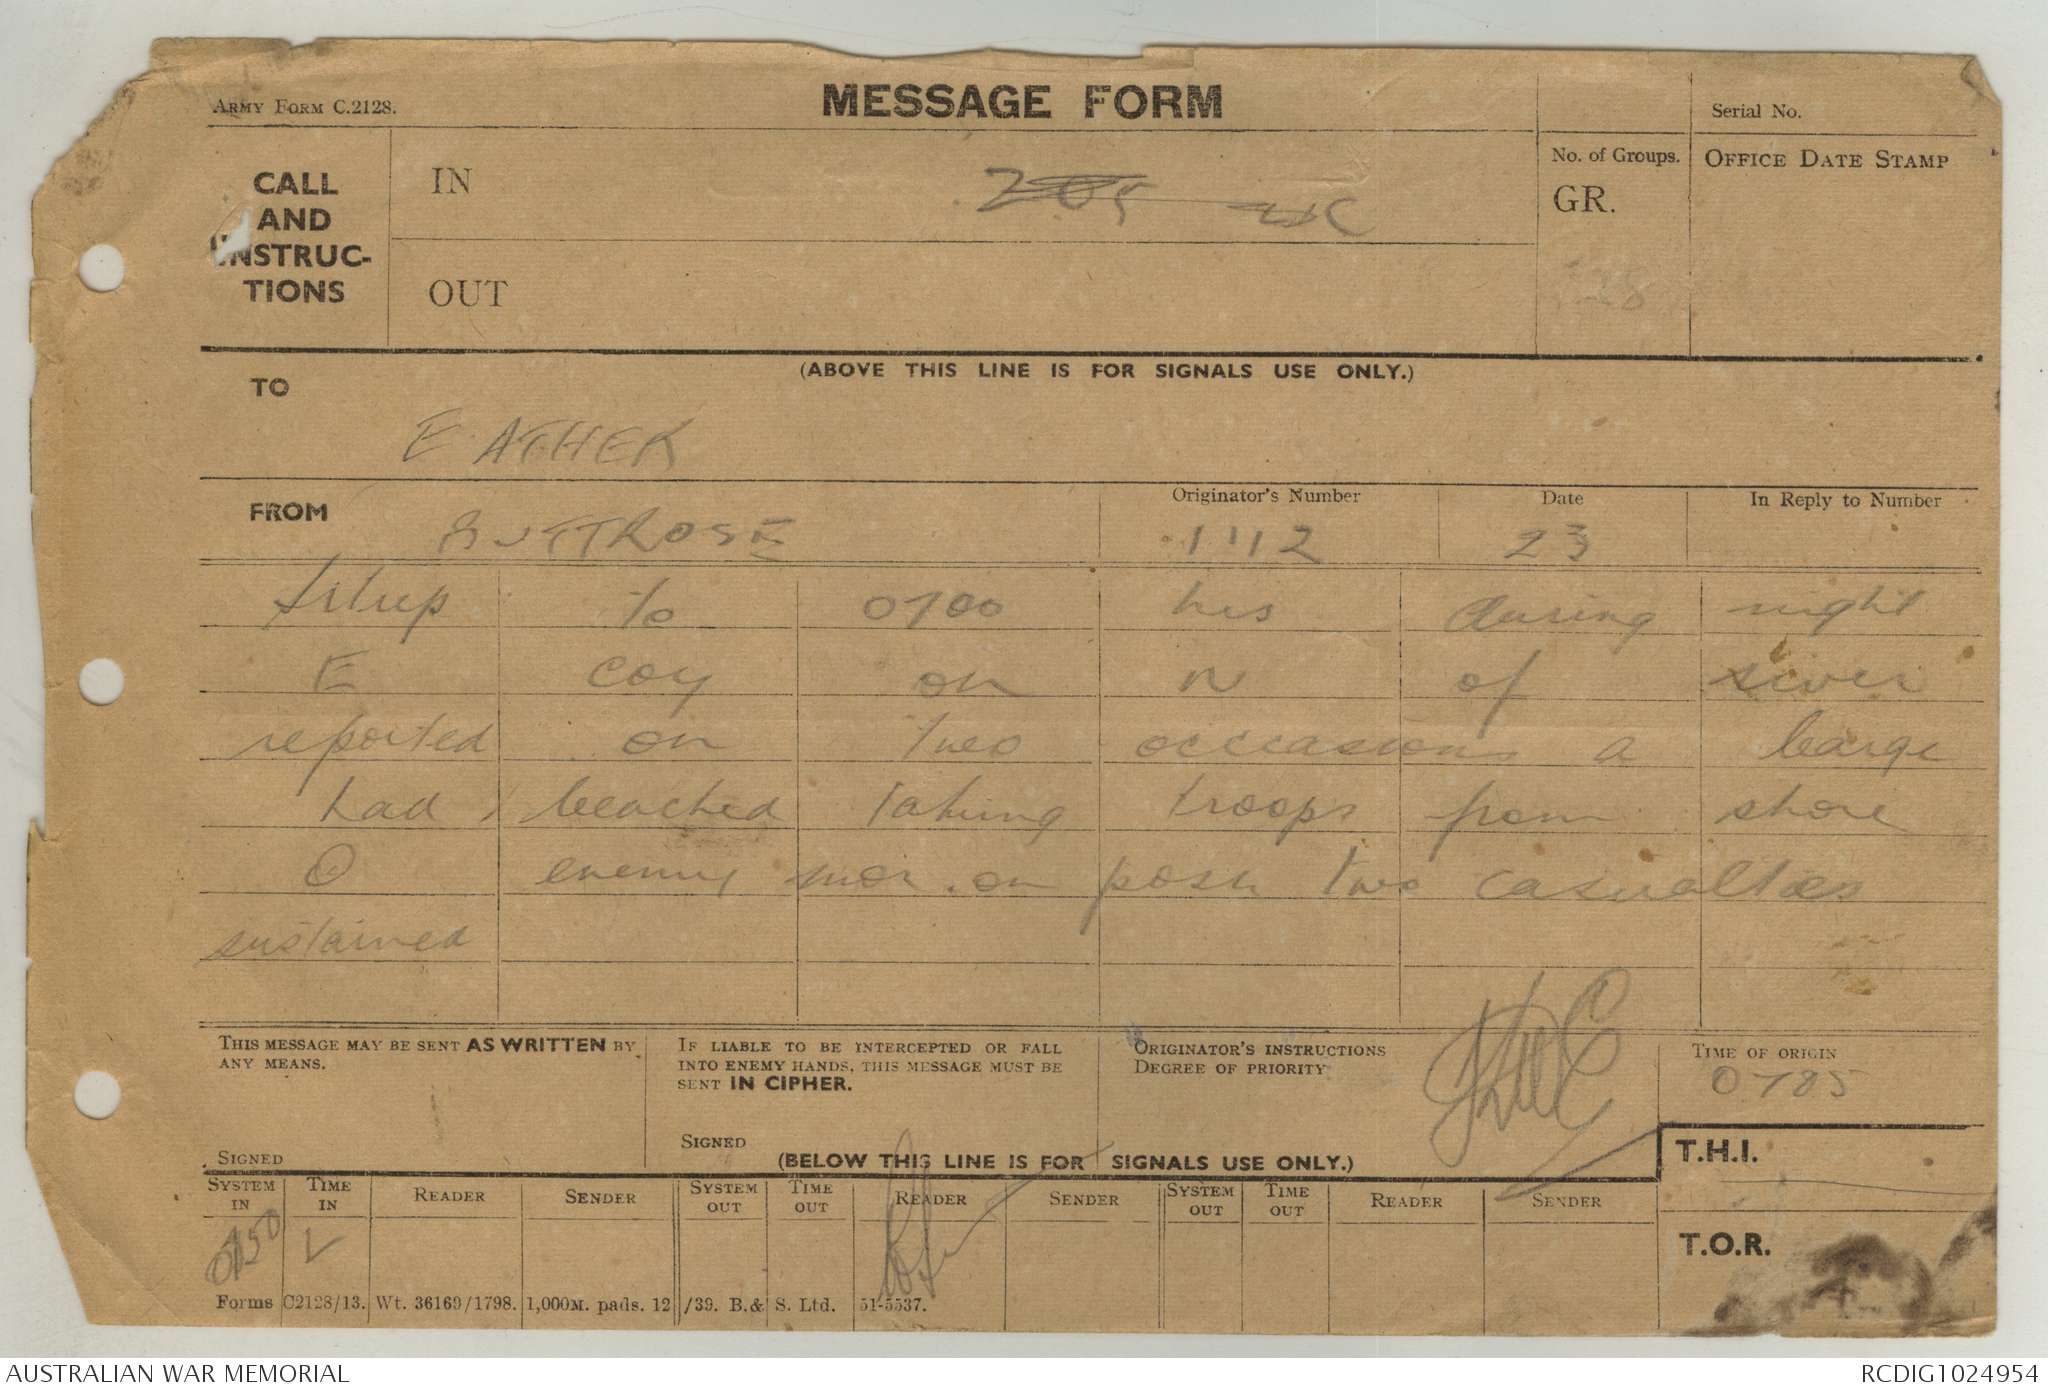 ARMY FORM C.2128.
MESSAGE FORM
Serial No.
CALL AND INSTRUCTIONS
IN
No. of Groups.
GR.
OFFICE DATE STAMP
OUT
28
(ABOVE THIS LINE IS FOR SIGNALS USE ONLY.)
TO
EATHER
FROM
BUTTROSE
Originator's Number
1112
Date
23
In Reply to Number
Sitrep to 0700 hrs during night
E coy on N of river
reported on two occcasions a barge
had beached taking troops from shore
O enemy mor. on posn two casualties
sustained
THIS MESSAGE MAY BE SENT AS WRITTEN BY ANY MEANS.
SIGNED
IF LIABLE TO BE INTERCEPTED OR FALL INTO ENEMY HANDS, THIS MESSAGE MUST BE SENT IN CIPHER.
SIGNED
ORIGINATOR'S INSTRUCTIONS
DEGREE OF PRIORITY
TIME OF ORIGIN
0785
(BELOW THIS LINE IS FOR SIGNALS USE ONLY.)
T.H.I.
SYSTEM IN
TIME IN
READER
SENDER
SYSTEM OUT
TIME OUT
READER
SENDER
SYSTEM OUT
TIME OUT
READER
SENDER
0750
T.O.R.
Forms C2128/13. Wt. 36169/1798. 1,000M. pads. 12/39. B. & S. Ltd. 51-5537.
AUSTRALIAN WAR MEMORIAL
RCDIG1024954